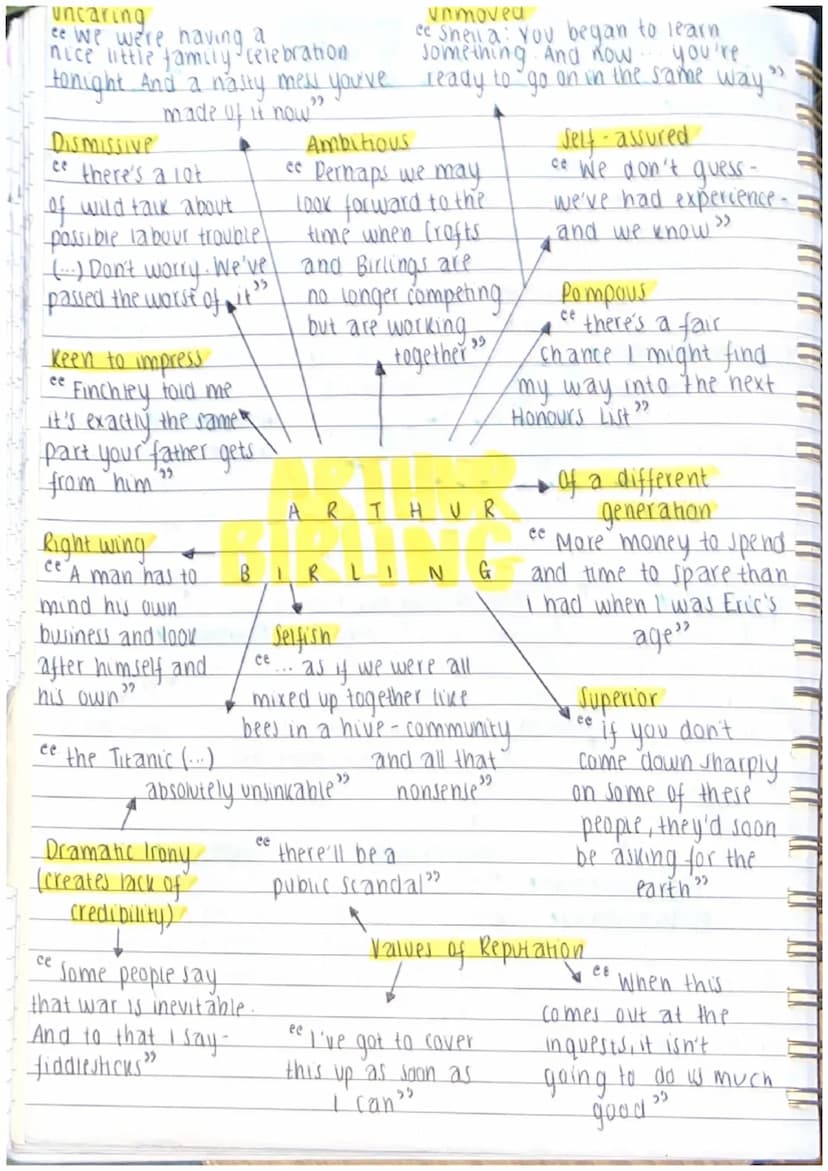 Uncaring
“ We were having a
nice little family celebration
tonight. And a nasty mess you've
made of it now”
Unmoved
“ Sheila: You began to learn
something. And now ... you're
ready to go on in the same way”
Dismissive
“ there's a lot
of wild talk about
possible labour trouble
(...) Don't worry. We've
passed the worst of it”
Ambitious
“ Perhaps we may
look forward to the
time when Crofts
and Birlings are
no longer competing
but are working
together”
Self-assured
“ We don't guess -
we've had experience -
and we know”
Pompous
“ there's a fair
chance I might find
my way into the next
Honours List”
Keen to impress
“ Finchley told me
it's exactly the same
part your father gets
from him”
ARTHUR
BIRLING
A R T H U R
B I R L I N G
Of a different
generation
“ More money to spend
and time to spare than
I had when I was Eric's
age”
Right wing
“ A man has to
mind his own
business and look
after himself and
his own”
Selfish
“... as if we were all
mixed up together like
bees in a hive - community
and all that
nonsense”
Superior
“ if you don't
come down sharply
on some of these
people, they'd soon
be asking for the
earth”
“ the Titanic (...)
absolutely unsinkable”
Dramatic Irony
(creates lack of
credibility)
“ Some people say
that war is inevitable.
And to that I say -
fiddlesticks”
“ there'll be a
public scandal”
Values of Reputation
“ I've got to cover
this up as soon as
I can”
“ When this
comes out at the
inquests, it isn't
going to do us much
good”